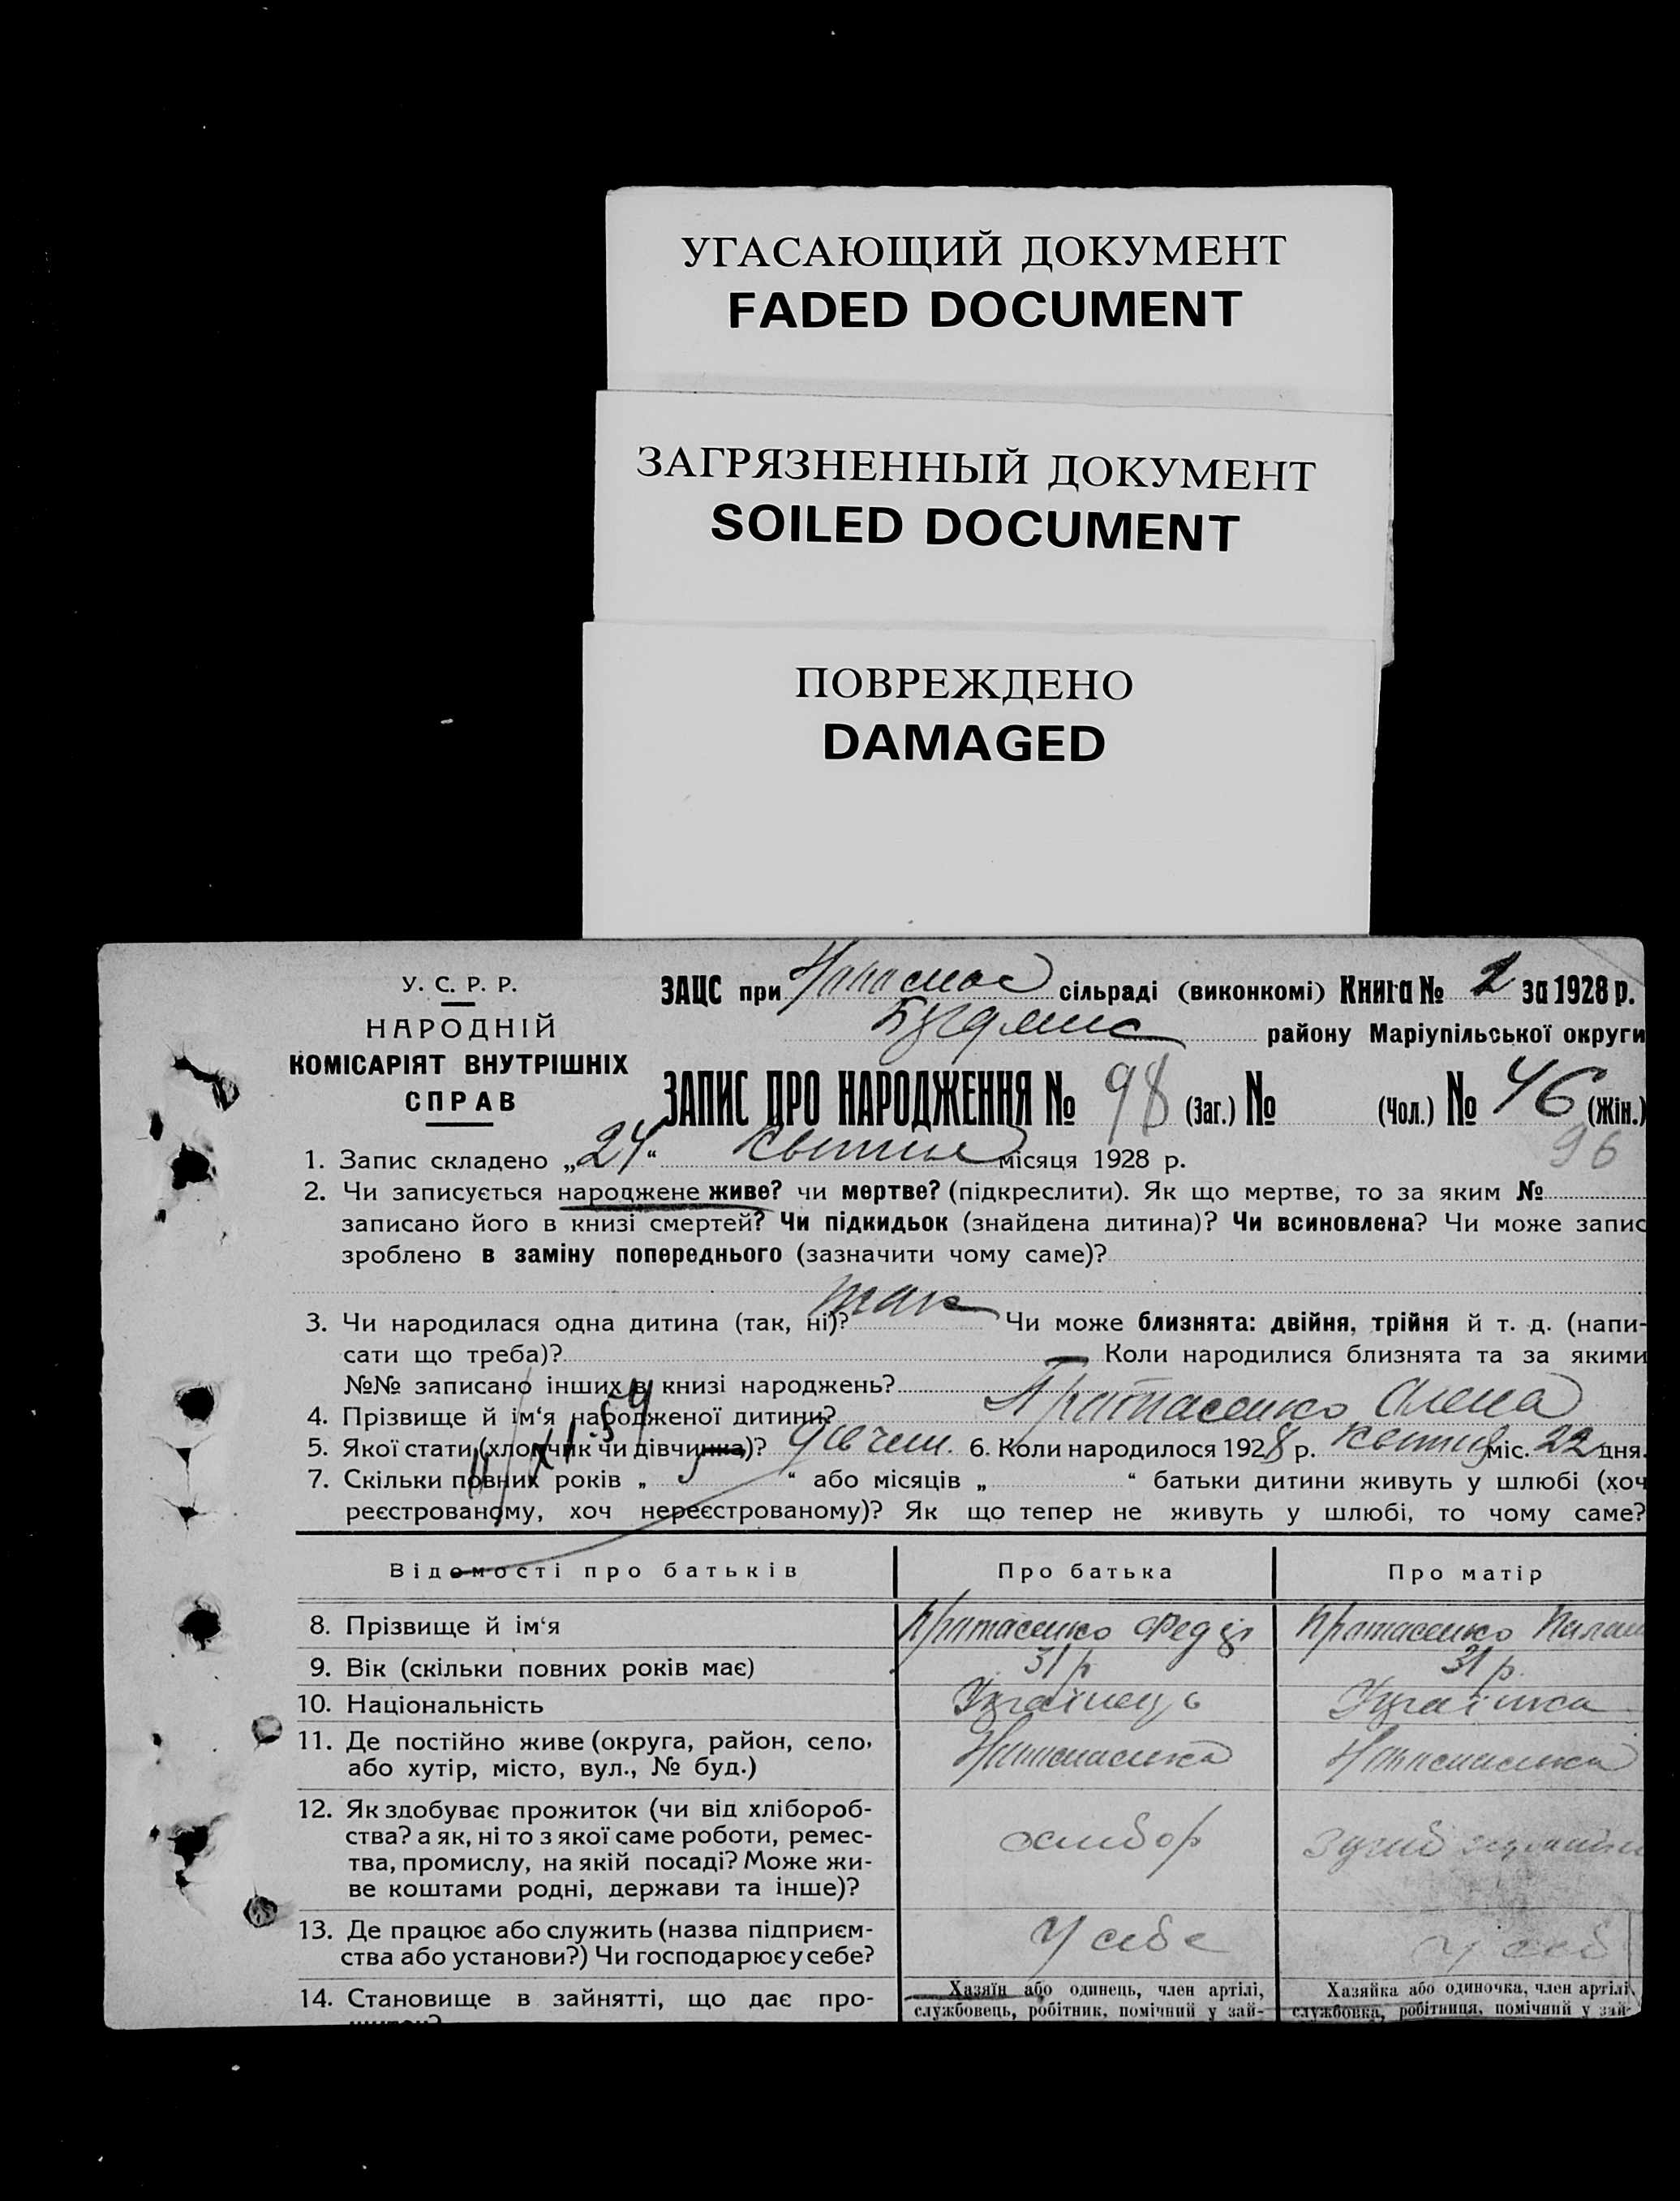 УГАСАЮЩИЙ ДОКУМЕНТ
FADED DOCUMENT
ЗАГРЯЗНЕННЫЙ ДОКУМЕНТ
SOILED DOCUMENT
ПОВРЕЖДЕНО
DAMAGED
У. С. Р. Р.
НАРОДНІЙ
КОМІСАРІЯТ ВНУТРІШНІХ
СПРАВ
ЗАЦС при сільраді (виконкомі) Книга № 2 за 1928 р.
району Маріупільської округи
ЗАПИС ПРО НАРОДЖЕННЯ № 98 (Заг.) № (Чол.) № 46 (Жін.)
96
1. Запис складено „24“ квітня місяця 1928 р.
2. Чи записується народжене живе? чи мертве? (підкреслити). Як що мертве, то за яким №
записано його в книзі смертей? Чи підкидьок (знайдена дитина)? Чи всиновлена? Чи може запис
зроблено в заміну попереднього (зазначити чому саме)?
3. Чи народилася одна дитина (так, ні)? так Чи може близнята: двійня, трійня й т. д. (напи-
сати що треба)? Коли народилися близнята та за якими
№№ записано інших в книзі народжень?
4. Прізвище й ім‘я народженої дитини? Пратасенко Олена
5. Якої стати (хлопчик чи дівчинка)? дівчин. 6. Коли народилося 1928 р. квітня міс. 22 дня.
7. Скільки повних років „ “ або місяців „ “ батьки дитини живуть у шлюбі (хоч
реєстрованому, хоч нереєстрованому)? Як що тепер не живуть у шлюбі, то чому саме?
Відомості про батьків Про батька Про матір
8. Прізвище й ім‘я Пратасенко Федір Пратасенко
9. Вік (скільки повних років має) 31 р 31 р.
10. Національність Українець Українка
11. Де постійно живе (округа, район, село,
або хутір, місто, вул., № буд.)
12. Як здобуває прожиток (чи від хлібороб-
ства? а як, ні то з якої саме роботи, ремес-
тва, промислу, на якій посаді? Може жи-
ве коштами родні, держави та інше)?
13. Де працює або служить (назва підприєм-
ства або установи?) Чи господарює у себе? У себе у себ
14. Становище в зайнятті, що дає про- Хазяїн або одинець, член артілі, Хазяйка або одиночка, член артілі,
службовець, робітник, помічний у зай- службовка, робітниця, помічний у зай-